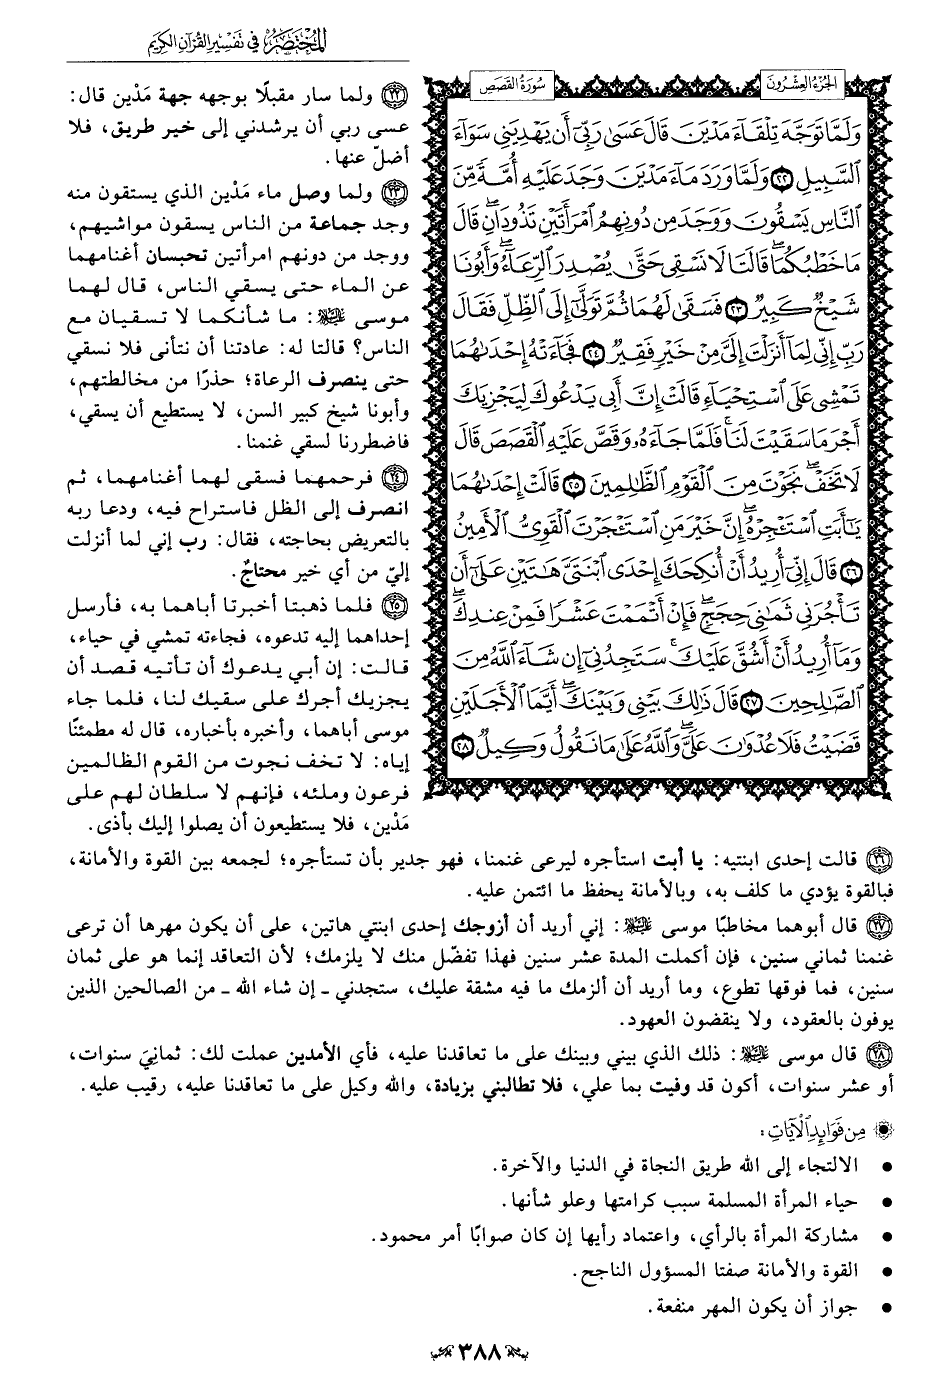 المختصر في تفسير القرآن الكريم
الجزء العشرون
سورة القصص
ولما توجه تلقاء مدين قال عسى ربي أن يهديني سواء
السبيل ۝٢٢ ولما ورد ماء مدين وجد عليه أمة من
الناس يسقون ووجد من دونهم امرأتين تذودان قال
ما خطبكما قالتا لا نسقي حتى يصدر الرعاء وأبونا
شيخ كبير ۝٢٣ فسقى لهما ثم تولى إلى الظل فقال
رب إني لما أنزلت إلي من خير فقير ۝٢٤ فجاءته إحداهما
تمشي على استحياء قالت إن أبي يدعوك ليجزيك
أجر ما سقيت لنا فلما جاءه وقص عليه القصص قال
لا تخف نجوت من القوم الظالمين ۝٢٥ قالت إحداهما
يا أبت استأجره إن خير من استأجرت القوي الأمين
۝٢٦ قال إني أريد أن أنكحك إحدى ابنتي هاتين على أن
تأجرني ثماني حجج فإن أتممت عشرا فمن عندك
وما أريد أن أشق عليك ستجدني إن شاء الله من
الصالحين ۝٢٧ قال ذلك بيني وبينك أيما الأجلين
قضيت فلا عدوان علي والله على ما نقول وكيل ۝٢٨
۝٢٢ ولما سار مقبلًا بوجهه جهة مَدْين قال:
عسى ربي أن يرشدني إلى خير طريق، فلا
أضلّ عنها.
۝٢٣ ولما وصل ماء مَدْين الذي يستقون منه
وجد جماعة من الناس يسقون مواشيهم،
ووجد من دونهم امرأتين تحبسان أغنامهما
عن الماء حتى يسقي الناس، قال لهما
موسى ﵇: ما شأنكما لا تسقيان مع
الناس؟ قالتا له: عادتنا أن نتأنى فلا نسقي
حتى ينصرف الرعاة؛ حذرًا من مخالطتهم،
وأبونا شيخ كبير السن، لا يستطيع أن يسقي،
فاضطررنا لسقي غنمنا.
۝٢٤ فرحمهما فسقى لهما أغنامهما، ثم
انصرف إلى الظل فاستراح فيه، ودعا ربه
بالتعريض بحاجته، فقال: رب إني لما أنزلت
إليّ من أي خير محتاجٌ.
۝٢٥ فلما ذهبتا أخبرتا أباهما به، فأرسل
إحداهما إليه تدعوه، فجاءته تمشي في حياء،
قالت: إن أبي يدعوك أن تأتيه قصد أن
يجزيك أجرك على سقيك لنا، فلما جاء
موسى أباهما، وأخبره بأخباره، قال له مطمئنًا
إياه: لا تخف نجوت من القوم الظالمين
فرعون وملئه، فإنهم لا سلطان لهم على
مَدْين، فلا يستطيعون أن يصلوا إليك بأذى.
۝٢٦ قالت إحدى ابنتيه: يا أبت استأجره ليرعى غنمنا، فهو جدير بأن تستأجره؛ لجمعه بين القوة والأمانة،
فبالقوة يؤدي ما كلف به، وبالأمانة يحفظ ما ائتمن عليه.
۝٢٧ قال أبوهما مخاطبًا موسى ﵇: إني أريد أن أزوجك إحدى ابنتي هاتين، على أن يكون مهرها أن ترعى
غنمنا ثماني سنين، فإن أكملت المدة عشر سنين فهذا تفضّل منك لا يلزمك؛ لأن التعاقد إنما هو على ثمان
سنين، فما فوقها تطوع، وما أريد أن ألزمك ما فيه مشقة عليك، ستجدني ـ إن شاء الله ـ من الصالحين الذين
يوفون بالعقود، ولا ينقضون العهود.
۝٢٨ قال موسى ﵇: ذلك الذي بيني وبينك على ما تعاقدنا عليه، فأي الأمدين عملت لك: ثمانِيَ سنوات،
أو عشر سنوات، أكون قد وفيت بما علي، فلا تطالبني بزيادة، والله وكيل على ما تعاقدنا عليه، رقيب عليه.
من فوائد الآيات:
• الالتجاء إلى الله طريق النجاة في الدنيا والآخرة.
• حياء المرأة المسلمة سبب كرامتها وعلو شأنها.
• مشاركة المرأة بالرأي، واعتماد رأيها إن كان صوابًا أمر محمود.
• القوة والأمانة صفتا المسؤول الناجح.
• جواز أن يكون المهر منفعة.
٣٨٨